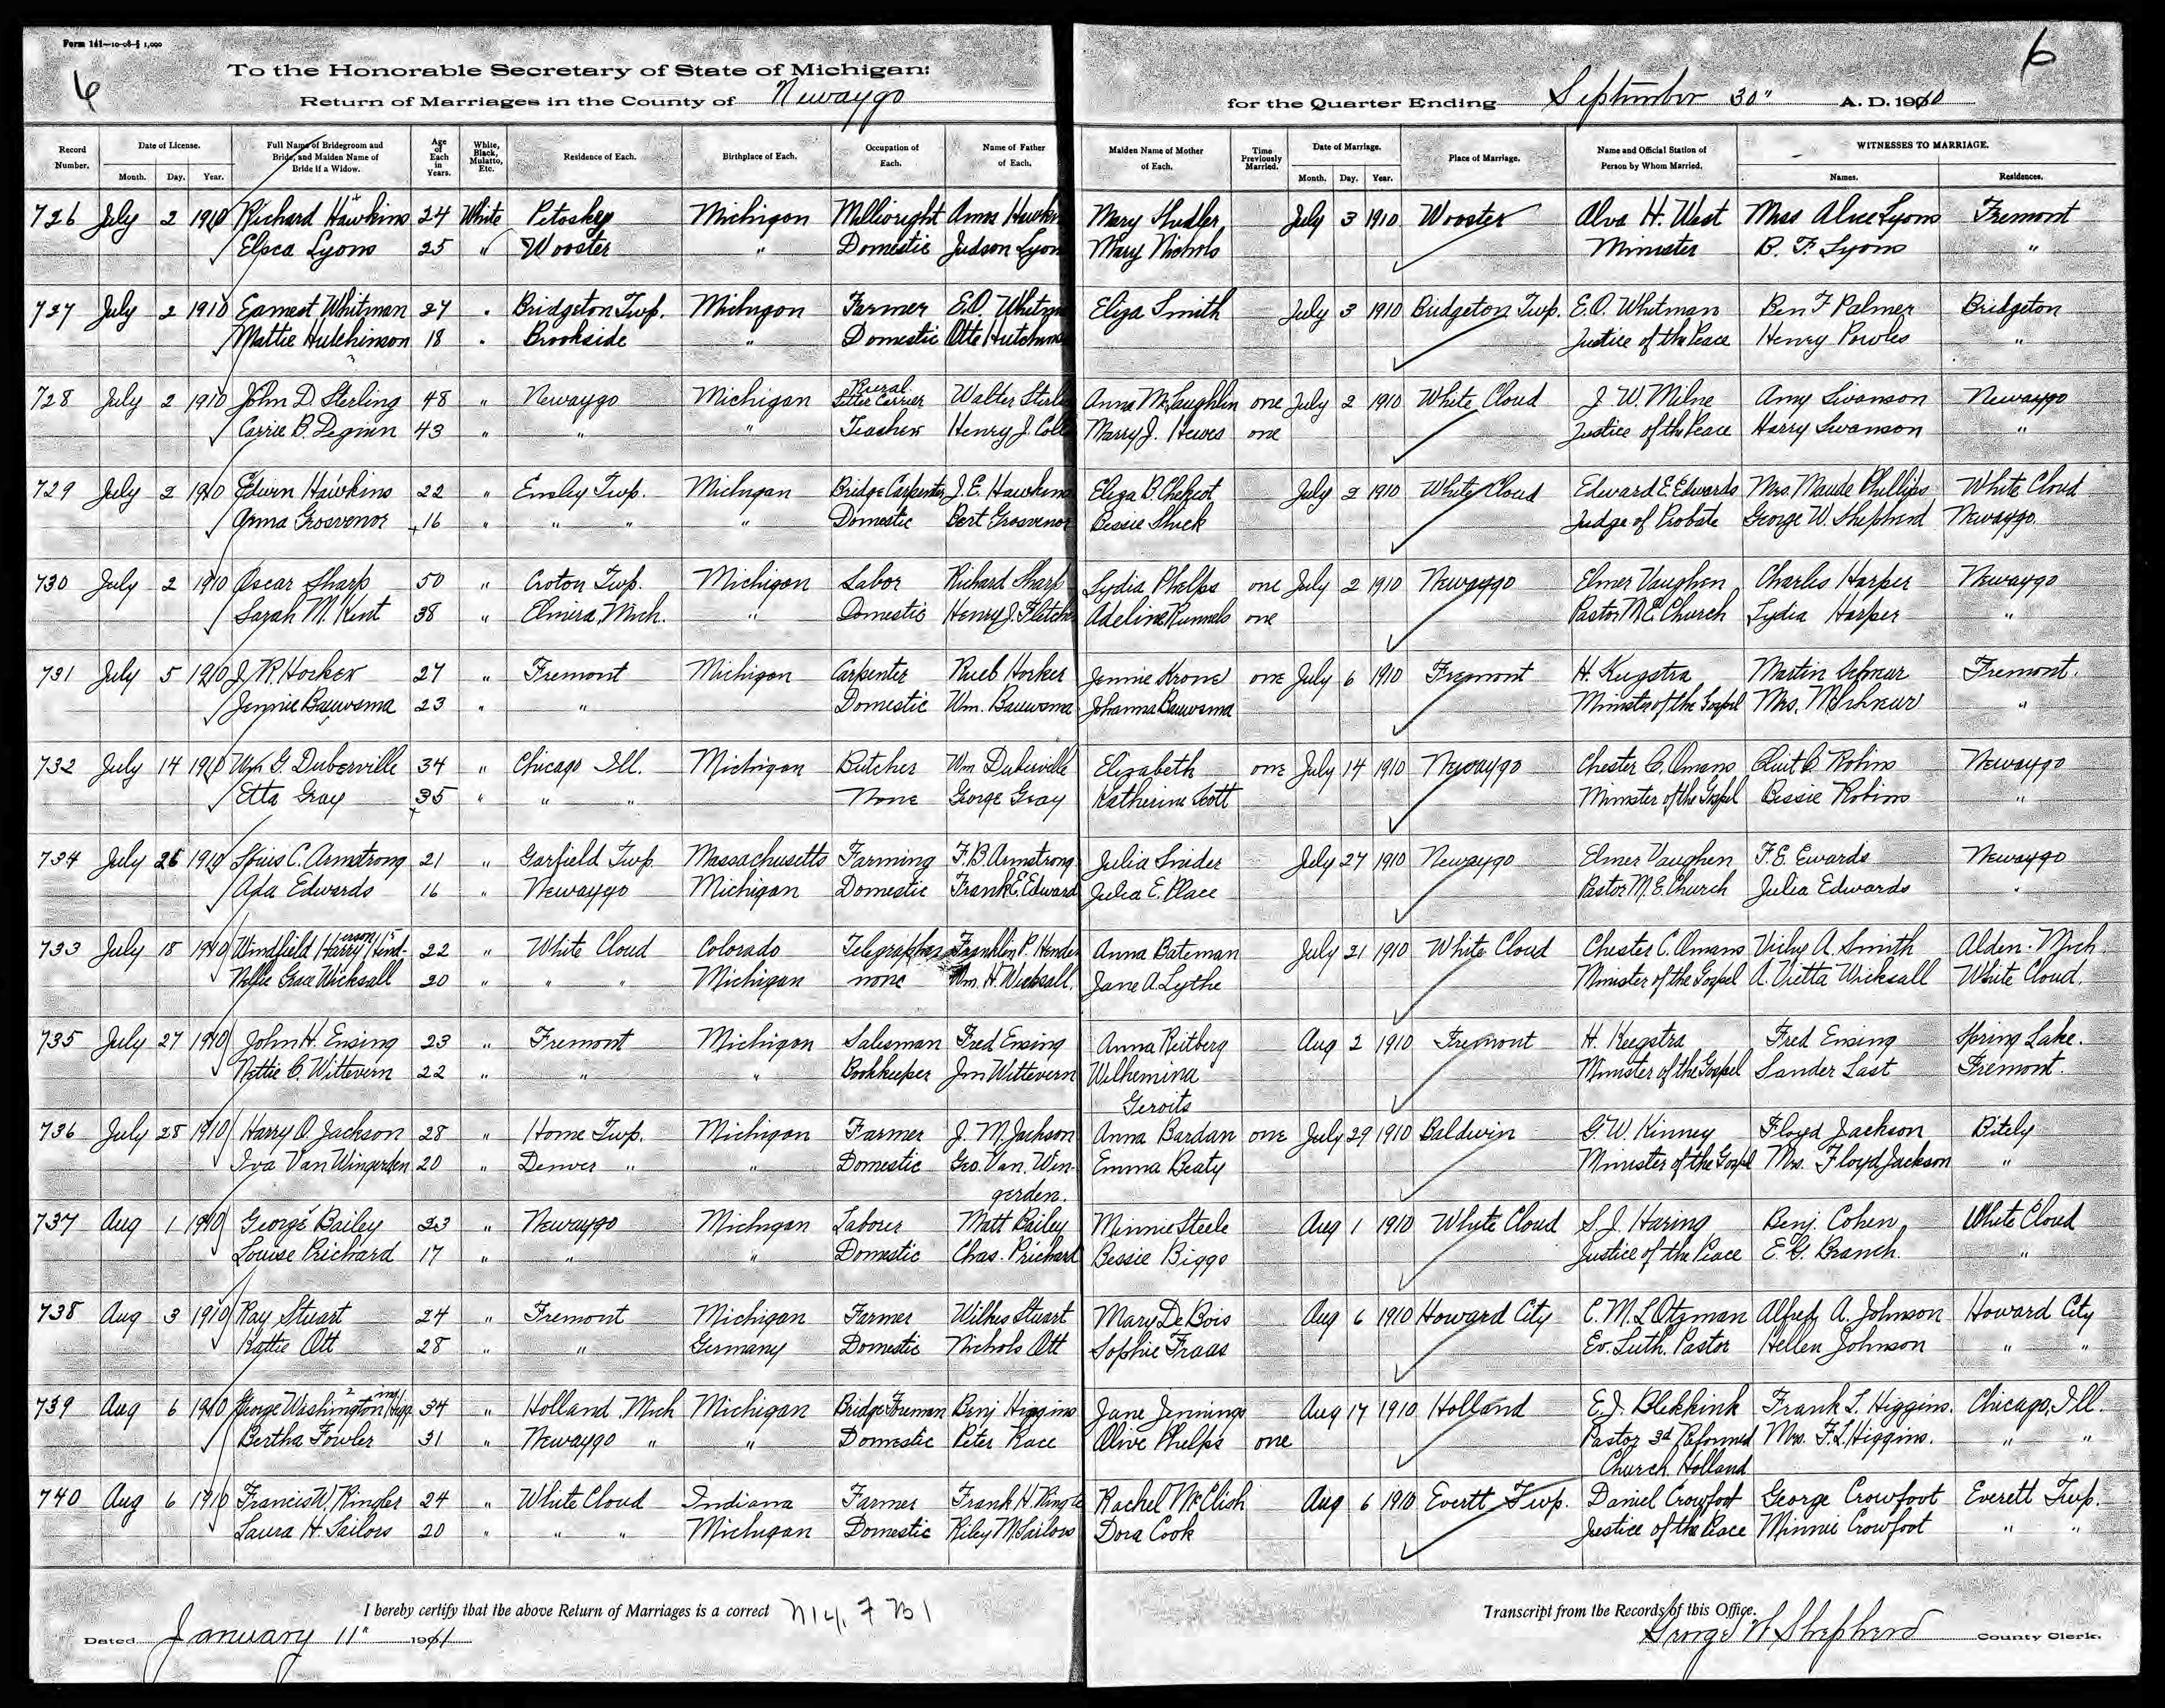 Form 141—10-08-§ 1,000
6
6
To the Honorable Secretary of State of Michigan:
Return of Marriages in the County of Newaygo for the Quarter Ending September 30" A. D. 1910
Record Number. Date of License. Full Name of Bridegroom and Bride, and Maiden Name of Bride if a Widow. Age of Each in Years. White, Black, Mulatto, Etc. Residence of Each. Birthplace of Each. Occupation of Each. Name of Father of Each. Maiden Name of Mother of Each. Time Previously Married. Date of Marriage. Place of Marriage. Name and Official Station of Person by Whom Married. WITNESSES TO MARRIAGE.
Month. Day. Year. Month. Day. Year. Names. Residences.
726 July 2 1910 Richard Hawkins 24 White Petoskey Michigan Millwright Amos Hawkin Mary Shadler July 3 1910 Wooster Alva H. West Miss Alice Lyons Fremont
Elsca Lyons 25 " Wooster " Domestic Judson Lyon Mary Nichols Minister B. F. Lyons "
727 July 2 1910 Earnest Whitman 27 " Bridgeton Twp. Michigan Farmer E.O. Whitm Eliza Smith July 3 1910 Bridgeton Twp. E.O. Whitman Ben F Palmer Bridgeton
Mattie Hutchinson 18 " Brookside " Domestic Otto Hutchins Justice of the Peace Henry Powles "
728 July 2 1910 John D. Sterling 48 " Newaygo Michigan Rural Letter Carrier Walter Sterl Anna McLaughlin one July 2 1910 White Cloud J. W. Milne Amy Swanson Newaygo
Carrie B. Deginn 43 " " " Teacher Henry J. Cole Marry J. Hewes one Justice of the Peace Harry Swanson "
729 July 2 1910 Edwin Hawkins 22 " Ensley Twp. Michigan Bridge Carpenter J. E. Hawkins Eliza B. July 2 1910 White Cloud Edward E. Edwards Mrs. Maude Phillips White Cloud
Anna Grosvenor 16 " " " " Domestic Bert Grosvenor Bessie Shick Judge of Probate George W. Shepherd Newaygo.
730 July 2 1910 Oscar Sharp 50 " Croton Twp. Michigan Labor Richard Sharp Lydia Phelps one July 2 1910 Newaygo Elmer Vaughen Charles Harper Newaygo
Sarah M. Kent 38 " Elmira, Mich. " Domestic Henry J. Fletch Adeline Runnels one Pastor M.E. Church Lydia Harper "
731 July 5 1910 J. R. Hocker 27 " Fremont Michigan Carpenter Rueb Hocker Jennie Krone one July 6 1910 Fremont H. Keegstra Martin Schnur Fremont.
Jennie Bauwsma 23 " " Domestic Wm. Bauwsma Johanna Bauwsma Minister of the Gospel Mrs. M. Schneur "
732 July 14 1910 Wm G. Duberville 34 " Chicago Ill. Michigan Butcher Wm Duberville Elizabeth one July 14 1910 Newaygo Chester C. Omans Clint C. Robins Newaygo
Etta Gray 35 " " " None George Gray Katherine Scott Minister of the Gospel Bessie Robins "
734 July 26 1910 Louis C. Armstrong 21 " Garfield Twp. Massachusetts Farming F. B. Armstrong Julia Snider July 27 1910 Newaygo Elmer Vaughen F. E. Ewards Newaygo
Ada Edwards 16 " Newaygo Michigan Domestic Frank E. Edward Julia E. Place Pastor M. E. Church Julia Edwards "
733 July 18 1910 Windfield Harry Henderson 22 " White Cloud Colorado Telegrapher Franklin P. Hender Anna Bateman July 21 1910 White Cloud Chester C. Omans Vicky A. Smith Alden. Mich.
Nellie Grace Wicksall 20 " " " Michigan none Wm. H. Wicksall. Jane A. Lythe Minister of the Gospel A. Vietta Wicksall White Cloud.
735 July 27 1910 John H. Ensing 23 " Fremont Michigan Salesman Fred Ensing Anna Reitberg Aug 2 1910 Fremont H. Keegstra Fred Ensing Spring Lake.
Nettie C. Wittevern 22 " " " Bookkeeper Jm Wittevern Wilhemina Minister of the Gospel Sander Last Fremont.
Geroits
736 July 28 1910 Harry O. Jackson 28 " Home Twp. Michigan Farmer J. M. Jackson Anna Bardan one July 29 1910 Baldwin G. W. Kinney Floyd Jackson Bitely
Iva Van Wingerden 20 " Denver " " Domestic Geo. Van. Win- Emma Beaty Minister of the Gospel Mrs. Floyd Jackson "
gerden.
737 Aug 1 1910 George Bailey 23 " Newaygo Michigan Laborer Matt Bailey Minnie Steele Aug 1 1910 White Cloud S. J. Haring Benj. Cohen White Cloud
Louise Prichard 17 " " " Domestic Chas. Prichard Bessie Biggs Justice of the Peace E. G. Branch "
738 Aug 3 1910 Ray Stuart 24 " Fremont Michigan Farmer Wilkes Stuart Mary De Bois Aug 6 1910 Howard City C. M. L. Otzman Alfred A. Johnson Howard City
Kattie Ott 28 " " Germany Domestic Nichols Ott Sophie Fraas Ev. Luth. Pastor Hellen Johnson " "
739 Aug 6 1910 George Washington Higgins 34 " Holland, Mich Michigan Bridge Foreman Benj Higgins Jane Jennings Aug 17 1910 Holland E. J. Blekkink Frank L. Higgins. Chicago, Ill.
Bertha Fowler 31 " Newaygo " " Domestic Peter Race Olive Phelps one Pastor 3d Reformed Mrs. F. L. Higgins. " "
Church. Holland
740 Aug 6 1910 Francis W. Ringler 24 " White Cloud Indiana Farmer Frank H. Ringle Rachel McClish Aug 6 1910 Evertt Twp. Daniel Crowfoot George Crowfoot Everett Twp.
Laura H. Sailors 20 " " " Michigan Domestic Riley M Sailors Dora Cook Justice of the Peace Minnie Crowfoot " "
I hereby certify that the above Return of Marriages is a correct Transcript from the Records of this Office.
Dated January 11" 1911 George W Shepherd County Clerk.